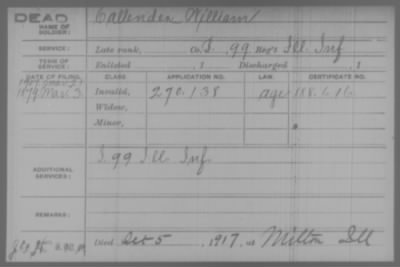 DEAD
NAME OF SOLDIER:
Callender William
SERVICE:
Late rank, Co. I. 99 Reg't Ill. Inf
TERM OF SERVICE:
Enlisted , 1 Discharged , 1
DATE OF FILING. CLASS. APPLICATION NO. LAW. CERTIFICATE NO.
1879 Mar. 3 Invalid, 270.138 age
Widow,
Minor,
ADDITIONAL SERVICES:
I. 99 Ill Inf
REMARKS:
Died Oct 5 , 1917, at Milton Ill